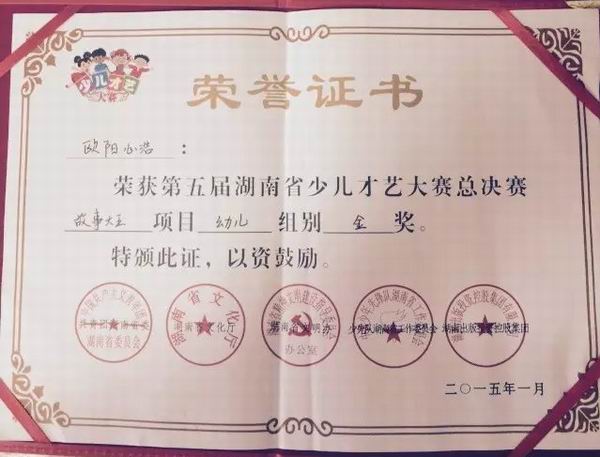 少儿才艺
大赛
荣誉证书
欧阳心浩：
荣获第五届湖南省少儿才艺大赛总决赛
故事大王 项目 幼儿 组别 金 奖。
特颁此证，以资鼓励。
共青团湖南省委 湖南省文化厅 湖南省文明办 少先队湖南省工作委员会 湖南出版投资控股集团
湖南省委员会
湖南省文化厅
办公室
二〇一五年一月